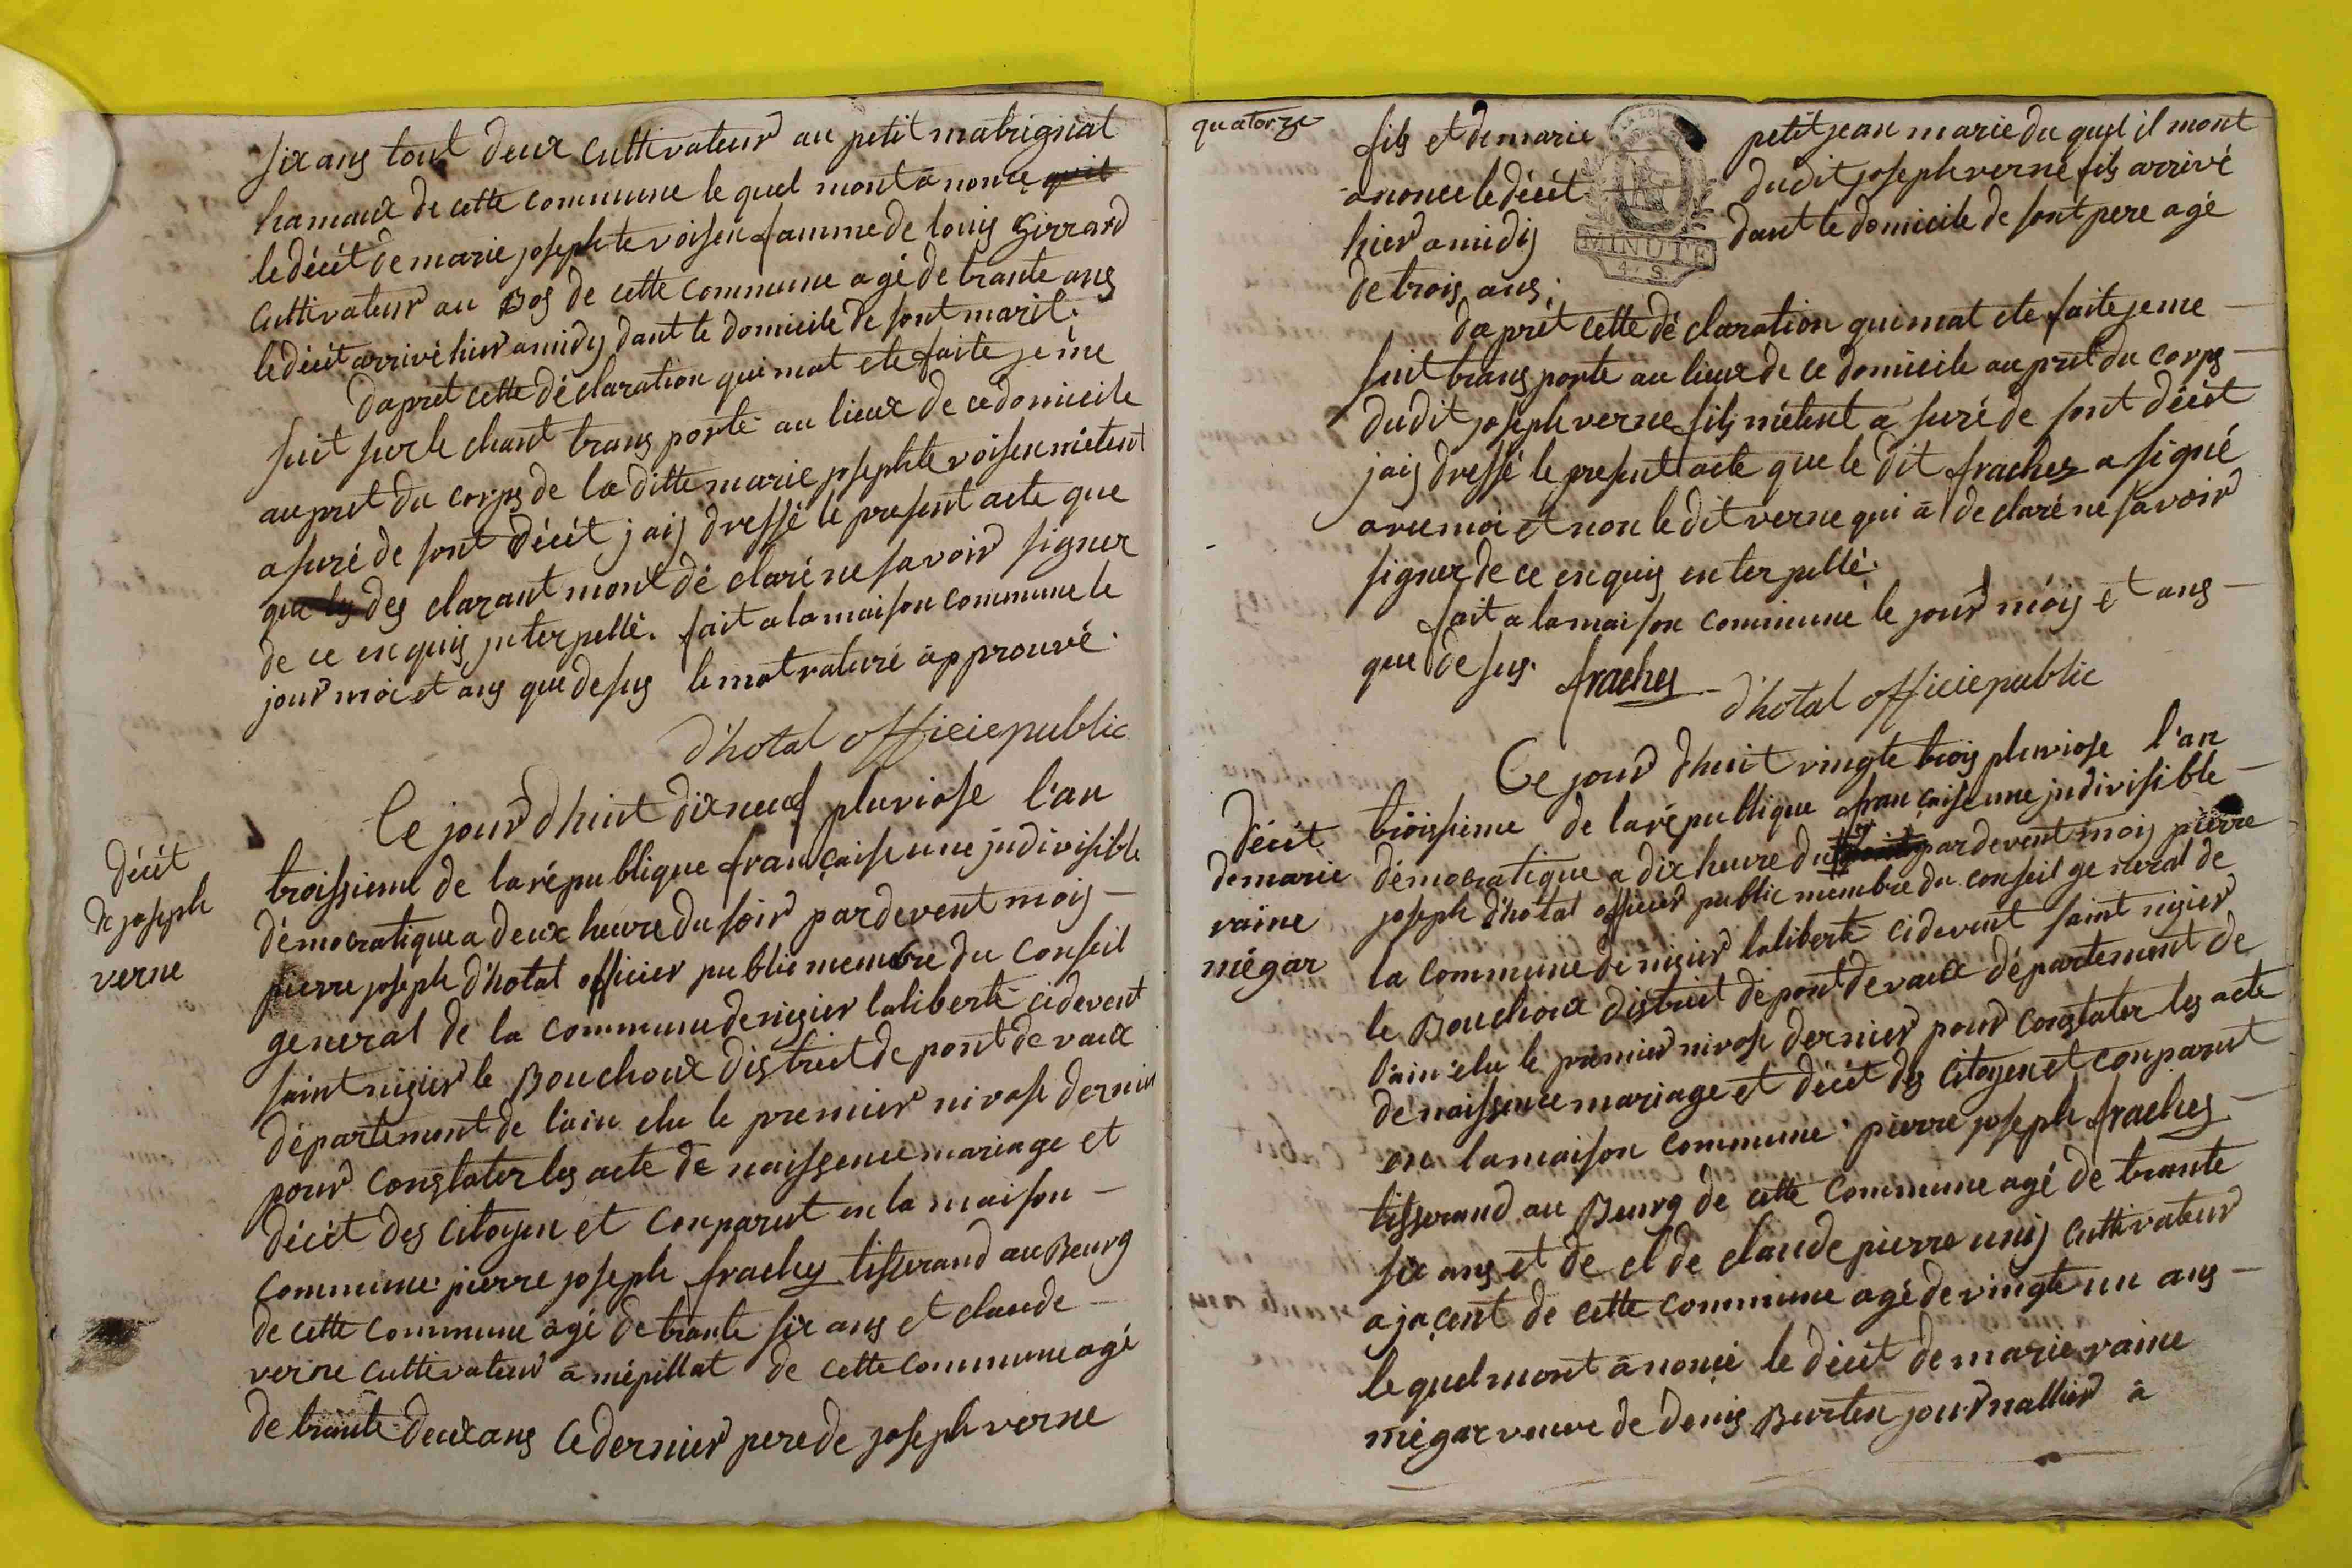 six ans tout deux cultivateur au petit matrignat
hamaux de cette commune le quel mont ànoncé quil
le décét de marie josephte voisen famme de louis Girrard
cultivateur au Bos de cette commune agé de trante ans
le décét arrivé hier a midy dant le domicile de sont maril.
daprét cette déclaration qui mat ete faite je me
suit sur le chant trans porté au lieux de ce domicile
au prét du corps de la ditte marie josephte voisen métent
asuré de sont décét jaij dressé le present acte que
que les des clarant mont déclaré ne savoir signer
de ce enquis interpellé. fait a la maison commune le
jour moi et ans que desus le mot raturé àpprouvé.
d'hotal officiepublic
décét
de joseph
verne
Ce jourd'huit dix neuf pluviose l'an
troissieme de la république française une jndivisible
démocratique a deux heure du soir pardevent moij
pierre joseph d'hotal officier public membre du conseil
general de la commune de nisier laliberté cidevent
saint nisier le Bouchoux district de pont de vaux
département de l'ain elu le premier nivose dernier
pour constater les acte de naissence mariage et
décét des citoyen et conparut en la maison
commune pierre joseph fraches tisserand au Beurg
de cette commune agé de trante six ans et claude
verne cultivateur à mépillat de cette commune agé
de trante deux ans ce dernier pere de joseph verne
quatorze
fils et de marie petitjean marie du quel il mont
anoncé le décét dudit joseph verne fils arrivé
hier a midij dant le domicile de sont pere agé
de trois ans.
MINUTE
4. S.
daprét cette déclaration qui mat ete faite je me
suit trans porté au lieux de ce domicile au prét du corps
dudit joseph verne fils métent asuré de sont décét
jaij dressé le present acte que le dit fraches a signé
avec moi et non le dit verne qui à declaré ne savoir
signer de ce enquis enterpellé.
fait a la maison commune le jour moij et ans
que desus. fraches
d'hotal officiepublic
décét
de marie
raine
mégar
Ce jourd'huit vingte trois pluviose l'an
troissieme de la république française une jndivisible
démocratique a dix heure du pardevent moij pierre
joseph d'hotal officier public membre du conseil general de
la commune de nisier laliberté cidevent saint nisier
le Bouchoux district de pont de vaux département de
l'ain elu le premier nivose dernier pour constater les acte
de naissence mariage et décét des citoyen et conparut
en la maison commune pierre joseph fraches
tisserand au Beurg de cette commune agé de trante
six ans et de el de claude pierre unij cultivateur
ajacent de cette commune agé de vingte un ans
le quel mont ànoncé le décét de marie raine
mégar veuve de denis Burten journallier à